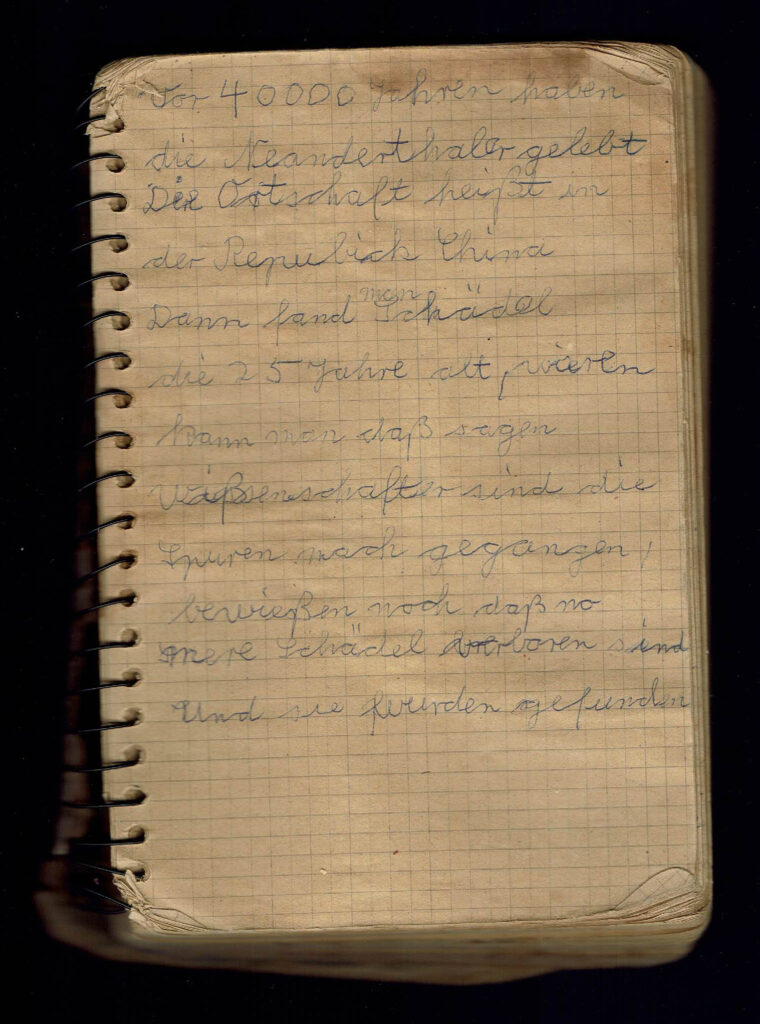 Vor 40000 Jahren haben
die Neanderthaler gelebt
Die Ortschaft heißt in
der Repubick China
Dann fand man Schädel
die 25 Jahre alt, wieren
kann man daß sagen
Wißsenschafter sind die
Spuren nach gegangen,
bewießen noch daß no
mere Schädel verboren sind
Und sie wurden gefunden